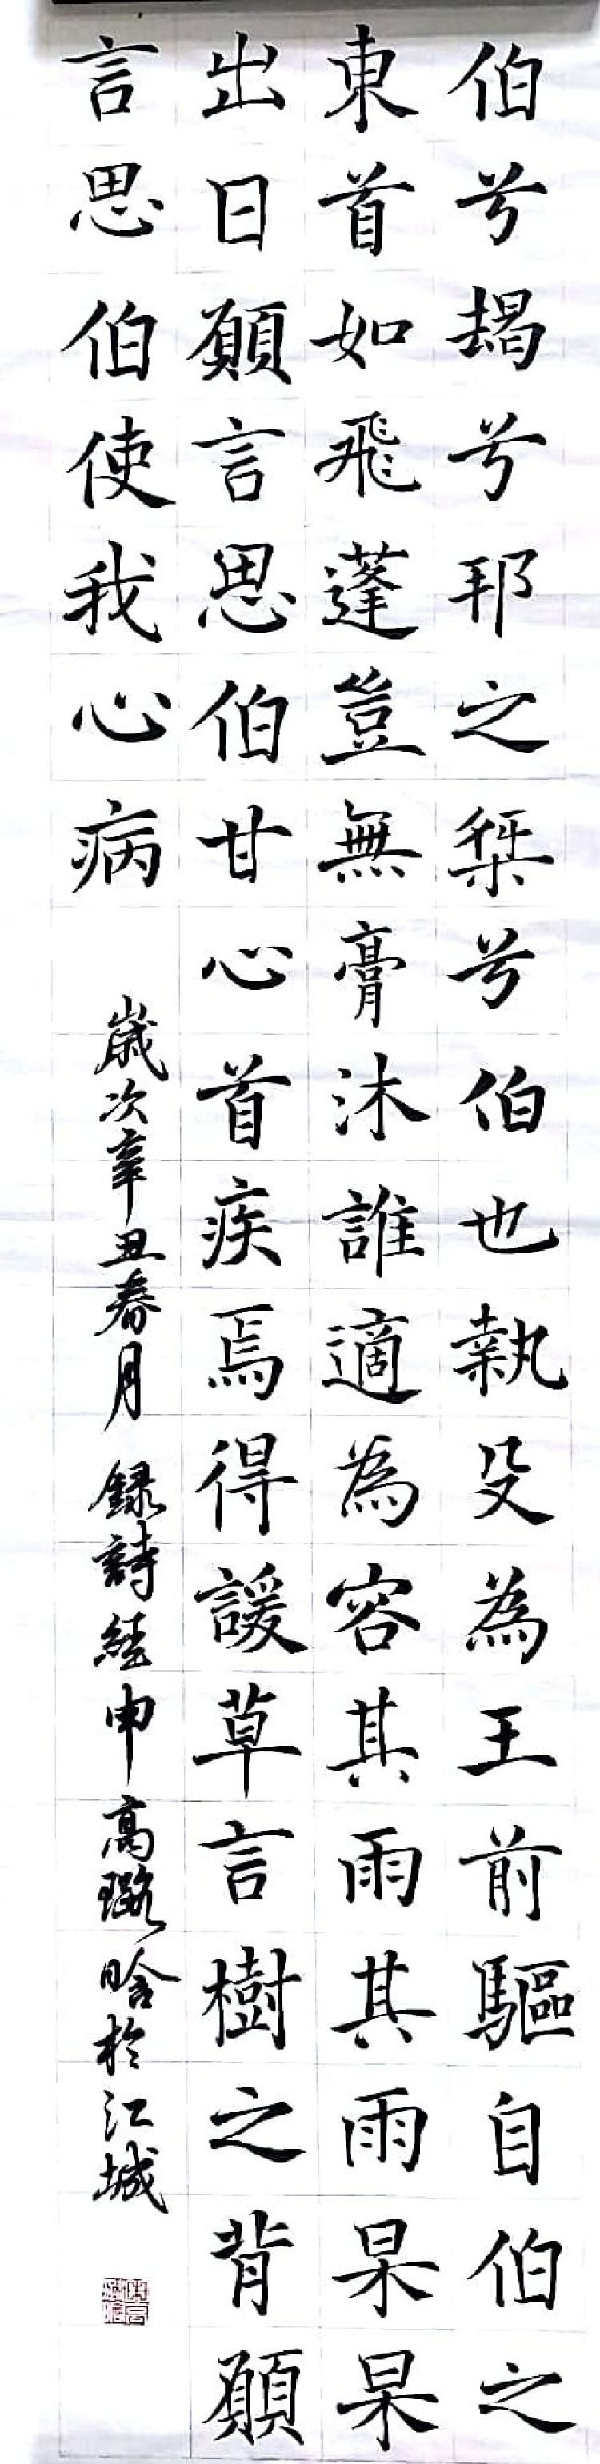 伯兮朅兮邦之桀兮伯也執殳為王前驅自伯之
東首如飛蓬豈無膏沐誰適為容其雨其雨杲杲
出日願言思伯甘心首疾焉得諼草言樹之背願
言思伯使我心痗
歲次辛丑春月 錄詩經 申高璐晗於江城